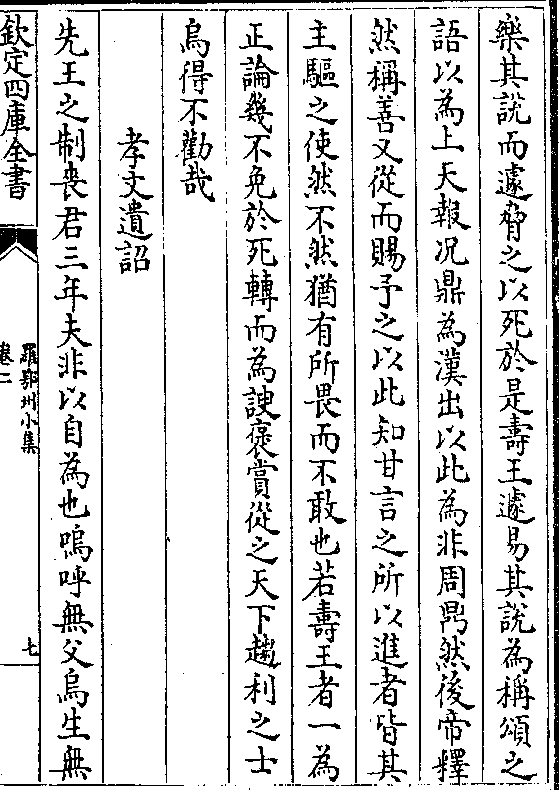 樂其說而遽脅之以死於是壽王遽易其說為稱頌之
語以為上天報况鼎為漢出以此為非周鼎然後帝釋
然稱善又從而賜予之以此知甘言之所以進者皆其
主驅之使然不然猶有所畏而不敢也若壽王者一為
正論幾不免於死轉而為諛褒賞從之天下趨利之士
烏得不勸哉
孝文遺詔
先王之制喪君三年夫非以自為也嗚呼無父烏生無
欽定四庫全書
羅鄂州小集
卷二
七